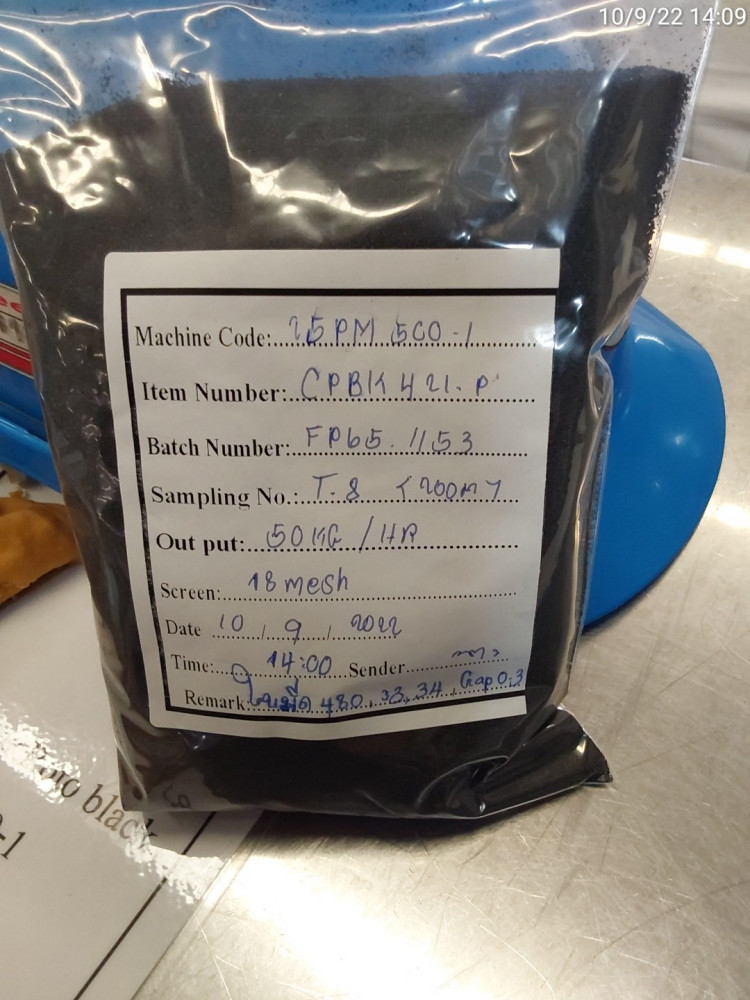 10/9/22 14:09
Machine Code: 25PM 500-1
Item Number: CPBK 421-P
Batch Number: FP65.1153
Sampling No.: T-8
Out put: 50 KG / HR
Screen: 18 mesh
Date 10 / 9 / 2022
Time: 14:00 Sender
Remark: ใบมีด 480, 33, 34, Gap 0.3
black
-1